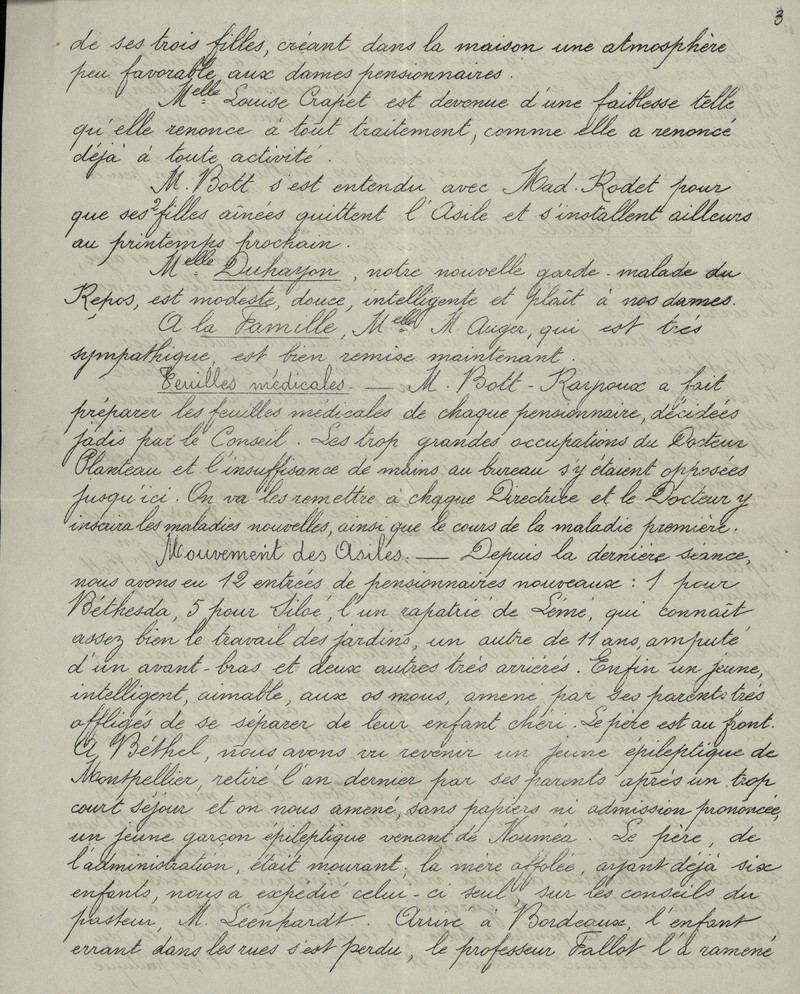 3
de ses trois filles, créant dans la maison une atmosphère
peu favorable aux dames pensionnaires.
Melle Louise Crapet est devenue d'une faiblesse telle
qu'elle renonce à tout traitement, comme elle a renoncé
déjà à toute activité.
M. Bott s'est entendu avec Mad. Rodet pour
que ses 2 filles aînées quittent l'Asile et s'installent ailleurs
au printemps prochain.
Melle Duhayon, notre nouvelle garde-malade du
Repos, est modeste, douce, intelligente et plaît à nos dames.
A la Famille, Melle M Auger, qui est très
sympathique, est bien remise maintenant.
Feuilles médicales. — M. Bott-Raypoux a fait
préparer les feuilles médicales de chaque pensionnaire, décidées
jadis par le Conseil. Les trop grandes occupations du Docteur
Planteau et l'insuffisance de mains au bureau s'y étaient opposées
jusqu'ici. On va les remettre à chaque Directrice et le Docteur y
inscrira les maladies nouvelles, ainsi que le cours de la maladie première.
Mouvement des Asiles. — Depuis la dernière séance,
nous avons eu 12 entrées de pensionnaires nouveaux : 1 pour
Béthesda, 5 pour Siloé, l'un rapatrié de Lémé, qui connaît
assez bien le travail des jardins, un autre de 11 ans, amputé
d'un avant-bras et deux autres très arriérés. Enfin un jeune,
intelligent, aimable, aux os mous, amené par ses parents très
affligés de se séparer de leur enfant chéri. Le père est au front.
A Béthel, nous avons vu revenir un jeune épileptique de
Montpellier, retiré l'an dernier par ses parents après un trop
court séjour et on nous amené, sans papiers ni admission prononcée,
un jeune garçon épileptique venant de Nouméa. Le père, de
l'administration, était mourant, la mère affolée, ayant déjà six
enfants, nous a expédié celui-ci seul, sur les conseils du
pasteur, M. Léenhardt. Arrivé à Bordeaux, l'enfant
errant dans les rues s'est perdu, le professeur Fallot l'a ramené